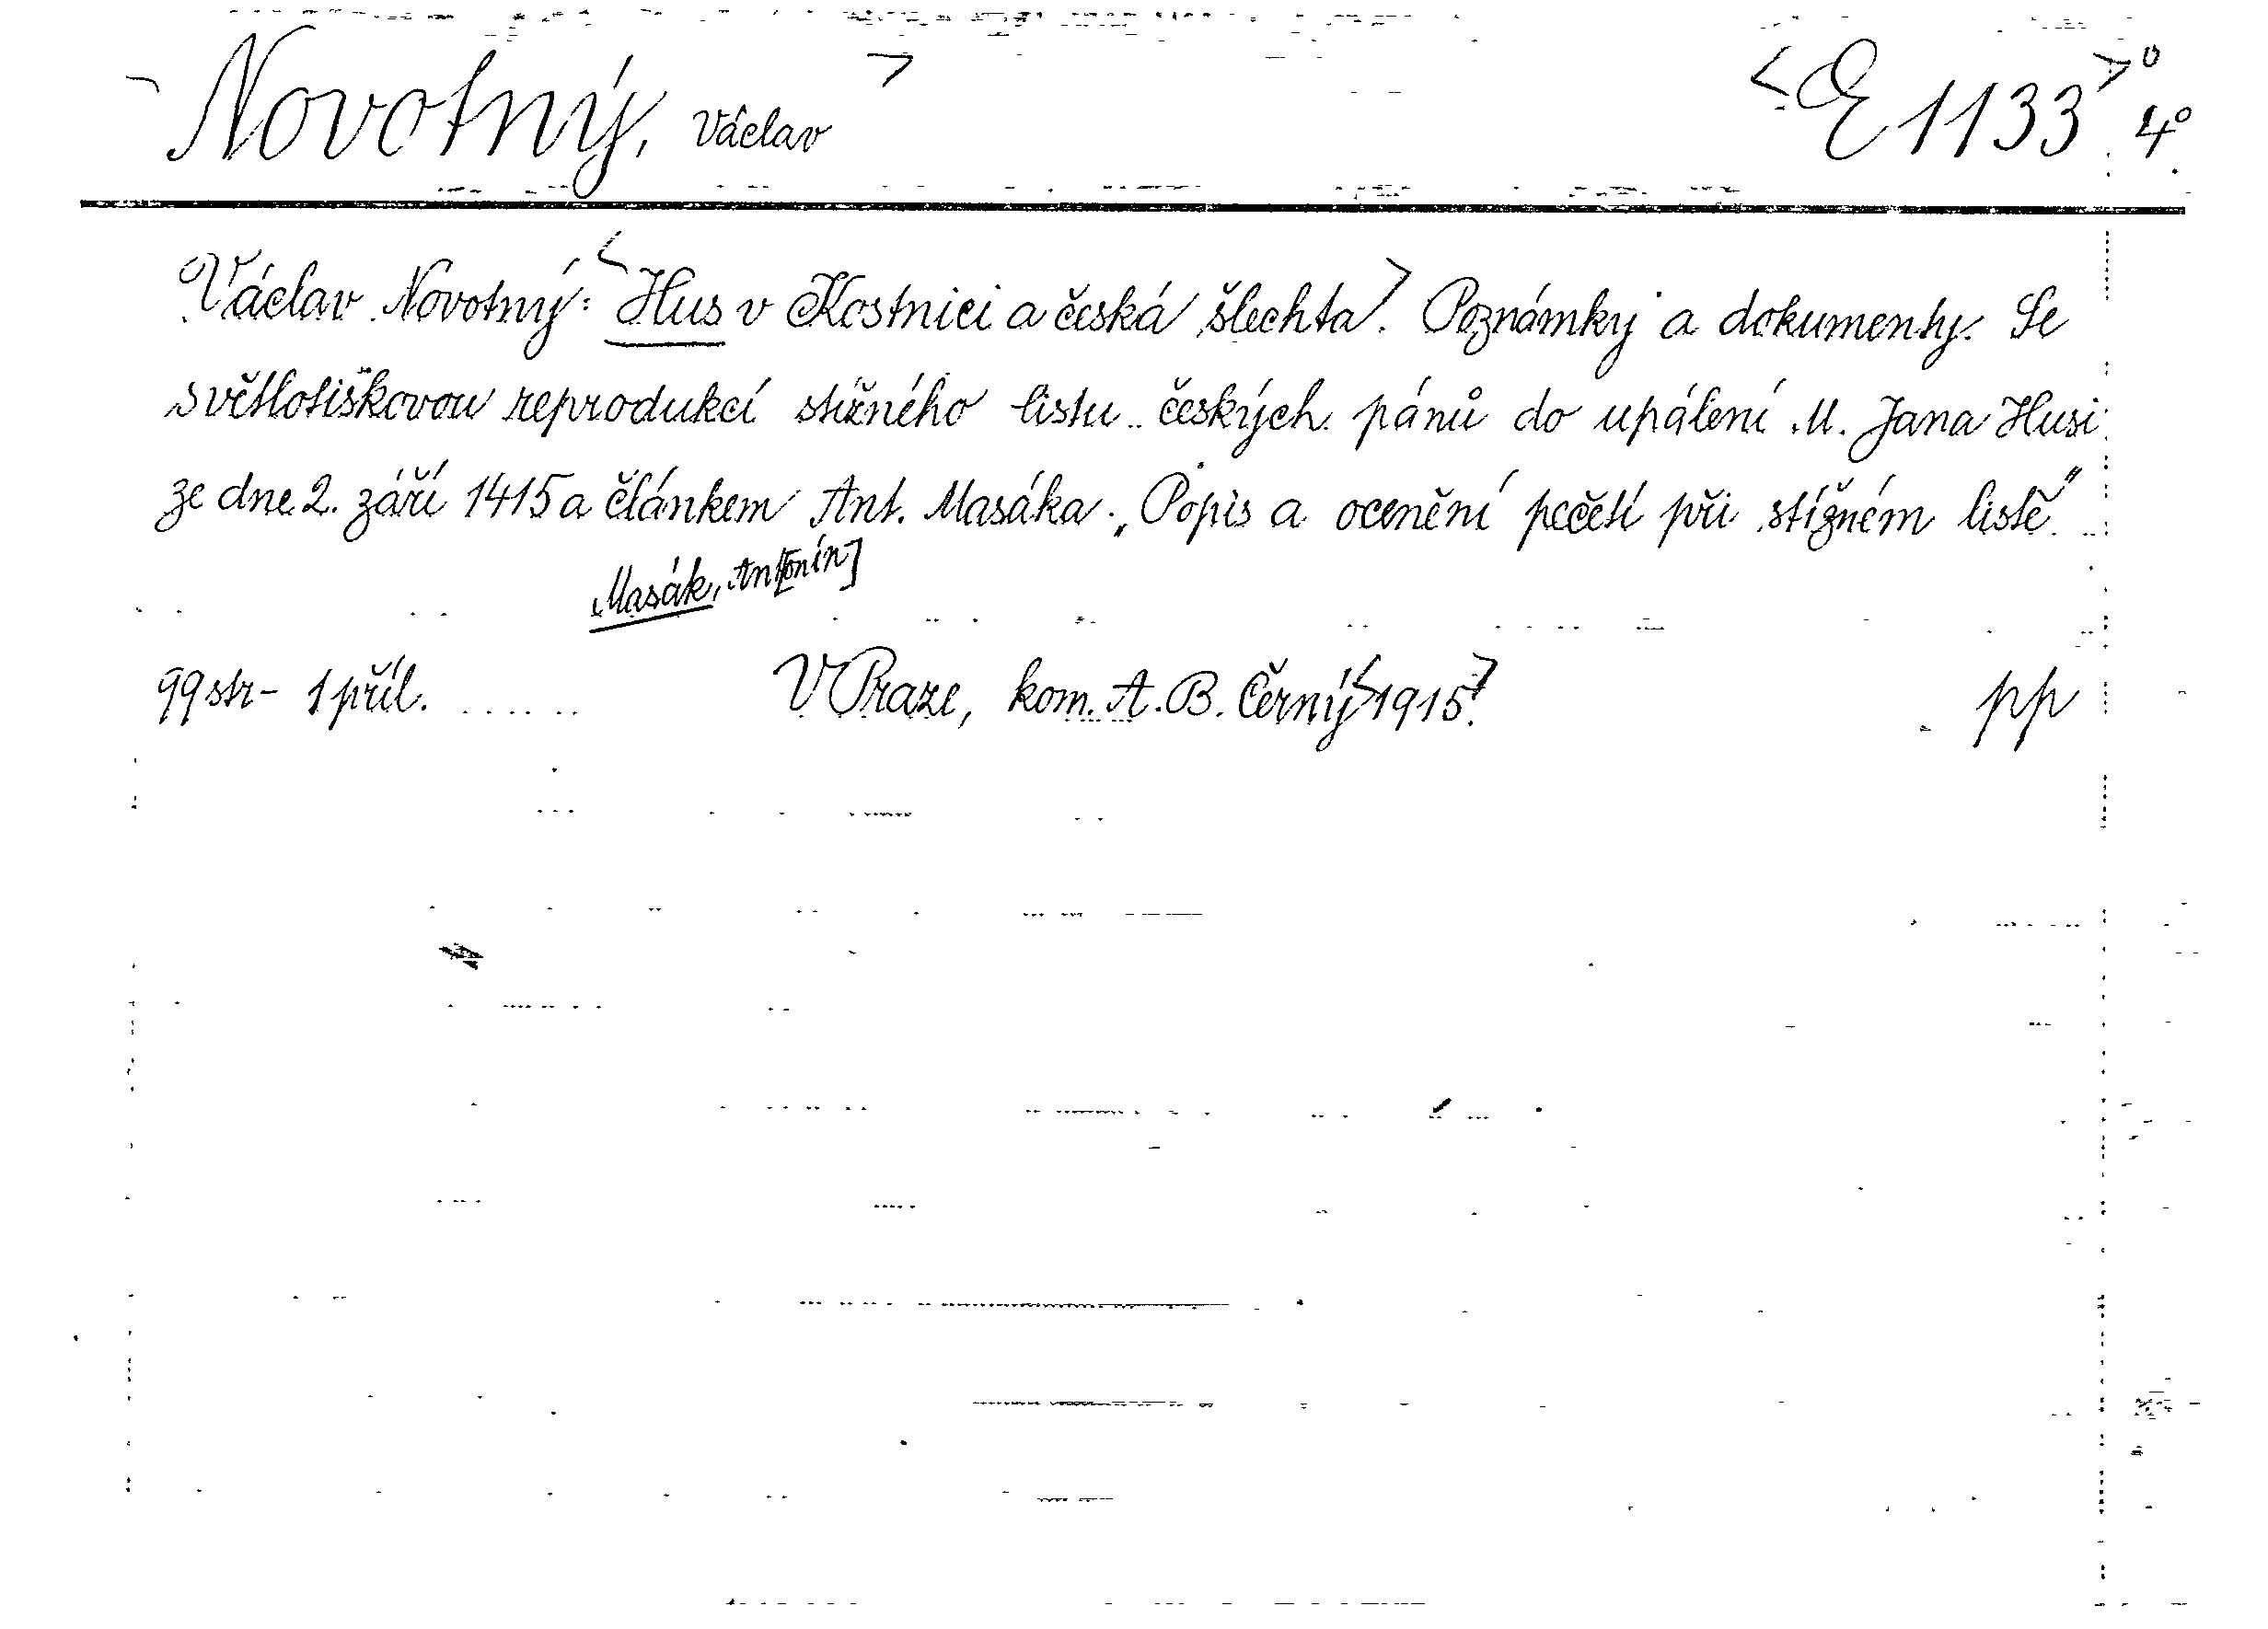 Novotný, Václav <E 1133> 4°
Václav Novotný: <Hus v Kostnici a česká šlechta>. Poznámky a dokumenty. Se
světlotiškovou reprodukcí stížného listu českých pánů do upálení M. Jana Husi
ze dne 2. září 1415 a článkem Ant. Masáka „Popis a ocenění pečetí při stížném listě"
Masák, Ant[onín]
99 str - 1 příl. V Praze, kom. A. B. Černý <1915> pp